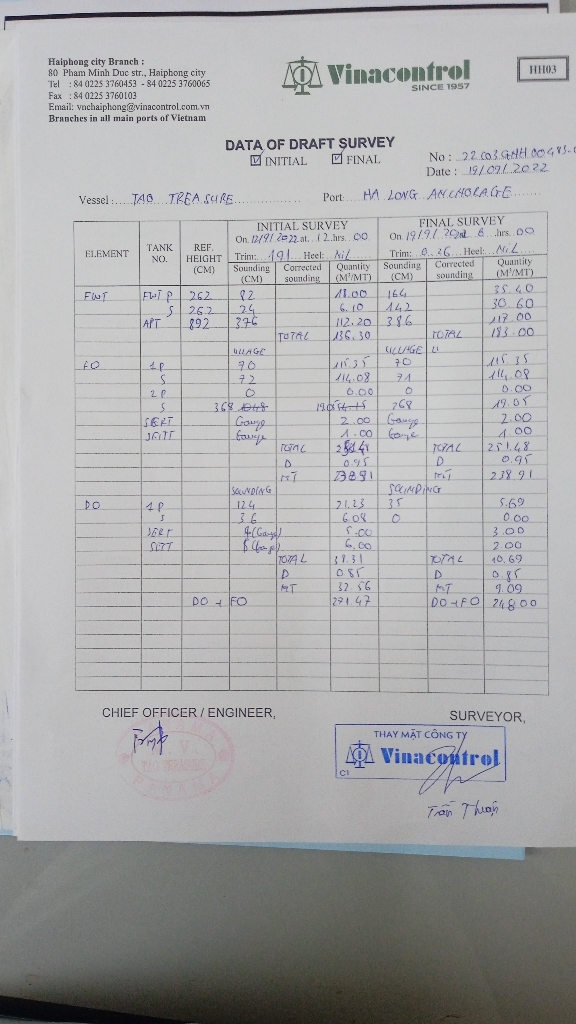 Haiphong city Branch :
80 Pham Minh Duc str., Haiphong city
Tel : 84 0225 3760453 - 84 0225 3760065
Fax : 84 0225 3760103
Email: vnchaiphong@vinacontrol.com.vn
Branches in all main ports of Vietnam
Vinacontrol
SINCE 1957
HH03
DATA OF DRAFT SURVEY
INITIAL FINAL
No :
Date : 19/09/2022
Vessel : TAO TREASURE Port: HA LONG ANCHORAGE
ELEMENT TANK NO. REF. HEIGHT (CM) INITIAL SURVEY FINAL SURVEY
at 12 hrs 00 On 19/9/ hrs 00
Trim: 191 Heel: NiL Trim: 0.26 Heel: NiL
Sounding (CM) Corrected sounding Quantity (M³/MT) Sounding (CM) Corrected sounding Quantity (M³/MT)
FWT FWT P 262 82 18.00 164 35.40
S 262 24 6.10 142 30.60
APT 892 376 112.20 386 117.00
TOTAL 136.30 TOTAL 183.00
ULLAGE ULLAGE
FO 1P 70 115.35 70 115.35
S 72 114.08 71 114.08
2P 0 0.00 0 0.00
S 368 19.05 268 19.05
SERT Gauge 2.00 Gauge 2.00
SETT Gauge 1.00 Gauge 1.00
TOTAL TOTAL 251.48
D 0.95 D 0.95
MT MT 238.91
SOUNDING SOUNDING
DO 1P 124 21.23 35 5.69
S 36 6.08 0 0.00
SERT (Gauge) 5.00 3.00
SETT 6.00 2.00
TOTAL 38.31 TOTAL 10.69
D 0.85 D 0.85
MT 32.56 MT 9.09
DO + FO 271.47 DO + FO 248.00
CHIEF OFFICER / ENGINEER,
SURVEYOR,
THAY MẶT CÔNG TY
Vinacontrol
C1
Trần Thuận